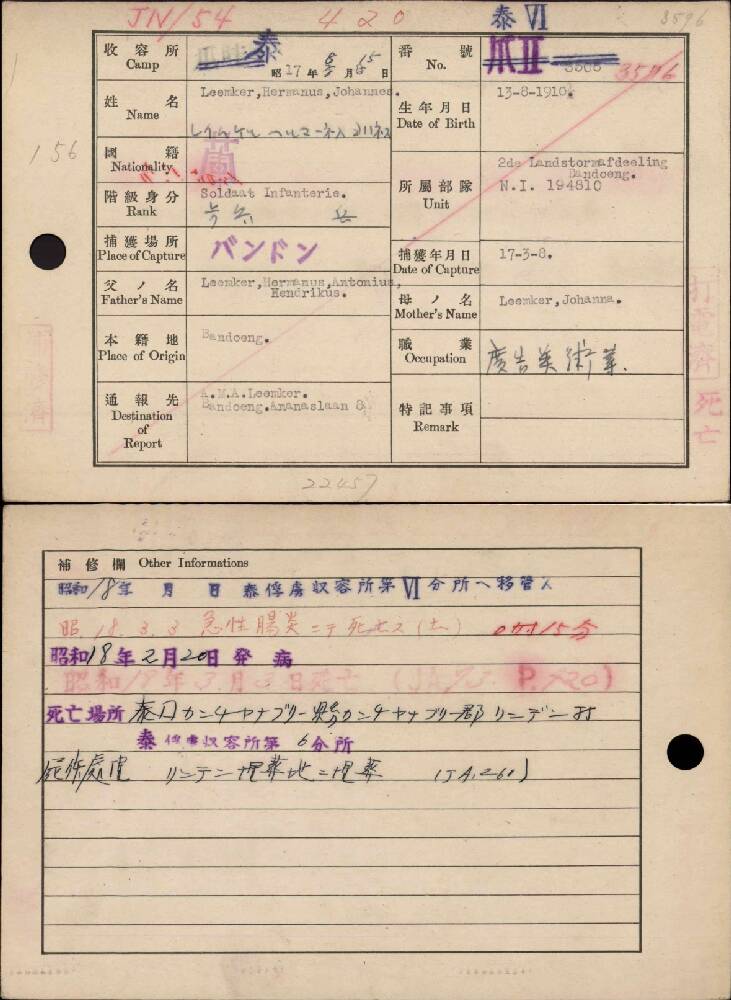 JN/54
420
泰 VI
3596
收容所 Camp
泰
昭17年8月15日
番號 No.
3596
姓名 Name
Leemker,Hermanus,Johannes.
生年月日 Date of Birth
13-8-1910.
156
國籍 Nationality
蘭
所屬部隊 Unit
2de Landstormafdeeling
Bandoeng.
N.I. 194810
階級身分 Rank
Soldaat Infanterie.
捕獲場所 Place of Capture
バンドン
捕獲年月日 Date of Capture
17-3-8.
父ノ名 Father's Name
Leemker,Hermanus,Antonius,
Hendrikus.
母ノ名 Mother's Name
Leemker,Johanna.
本籍地 Place of Origin
Bandoeng.
職業 Occupation
廣告美術業.
通報先 Destination of Report
A.M.A.Leemker.
Bandoeng.Ananaslaan 8
特記事項 Remark
打電濟
死亡
22457
補修欄 Other Informations
昭和18年 月 日 泰俘虜収容所第VI分所ヘ移管ス
昭18.3.3 急性腸炎ニテ死亡ス(土) 0時15分
昭和18年2月20日発病
昭和18年3月3日死亡
死亡場所 泰国カンチャナブリー県カンチャナブリー郡リンテン村
泰俘虜収容所第6分所
屍体處置 リンテン埋葬地ニ埋葬 (JA.260)